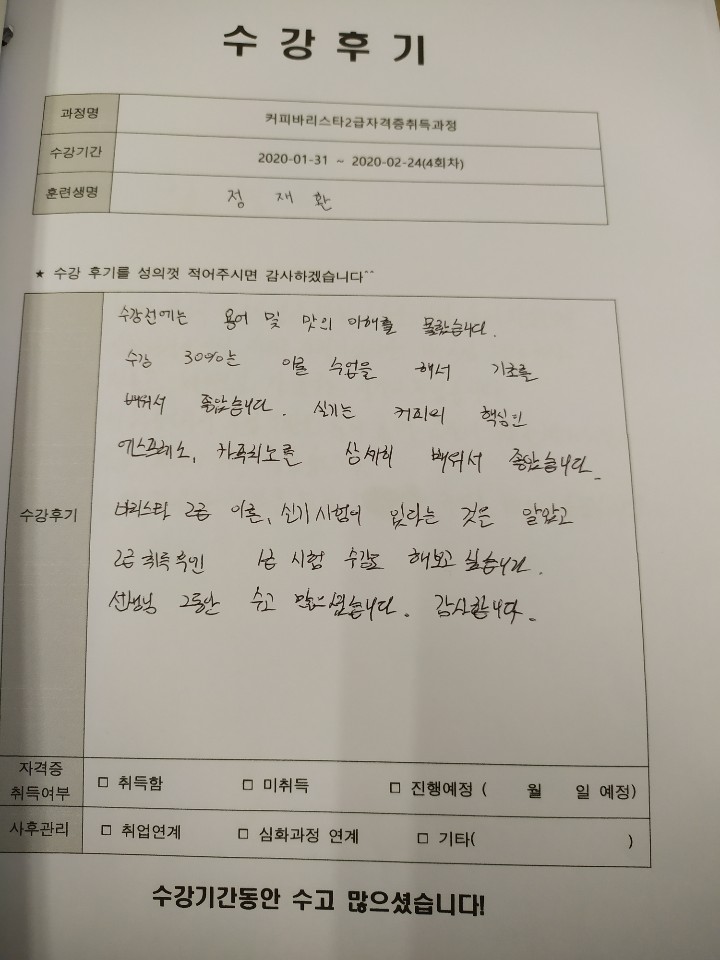 수강후기
과정명 커피바리스타2급자격증취득과정
수강기간 2020-01-31 ~ 2020-02-24(4회차)
훈련생명 정재환
★ 수강 후기를 성의껏 적어주시면 감사하겠습니다^^
수강전에는 용어 및 맛의 이해를 몰랐습니다.
수강 30%는 이론 수업을 해서 기초를
배워서 좋았습니다. 실기는 커피의 핵심인
에스프레소, 카푸치노를 상세히 배워서 좋았습니다.
수강후기
바리스타 2급 이론, 실기시험이 있다는 것은 알았고
2급 취득 후엔 1급 시험 수강도 해보고 싶습니다.
선생님 그동안 수고 많으셨습니다. 감사합니다.
자격증
취득여부 □ 취득함 □ 미취득 □ 진행예정 ( 월 일 예정)
사후관리 □ 취업연계 □ 심화과정 연계 □ 기타( )
수강기간동안 수고 많으셨습니다!